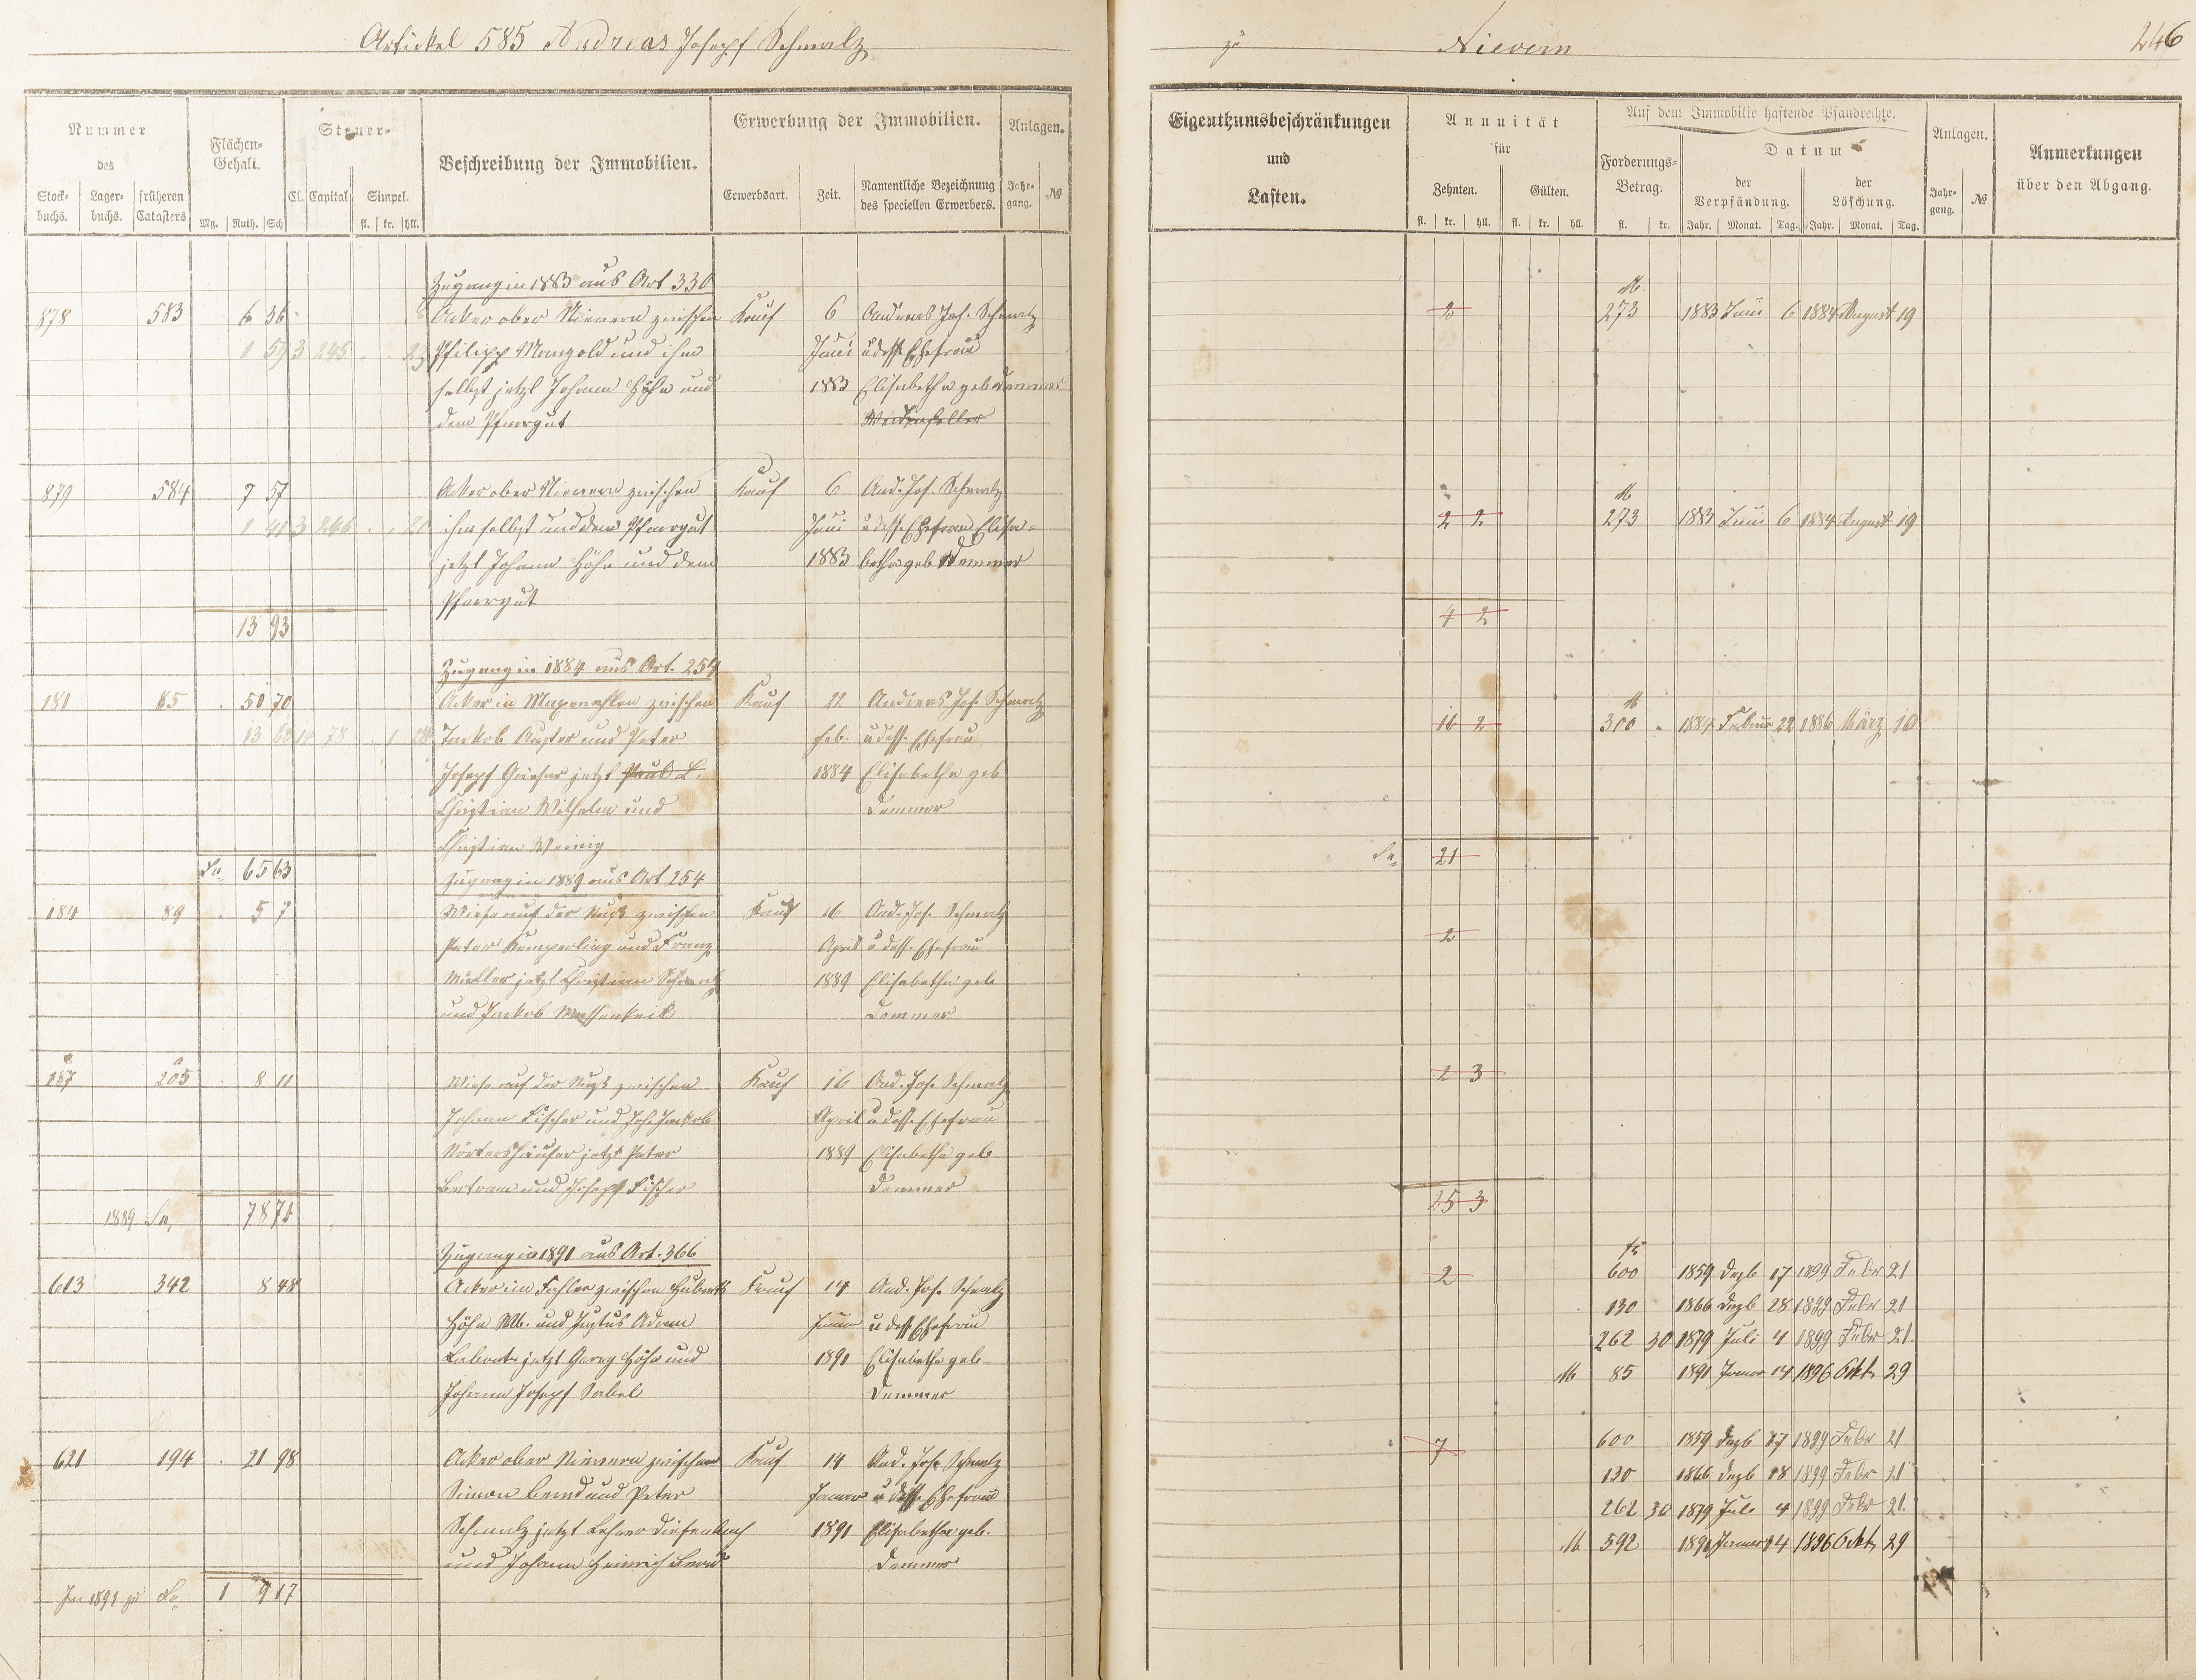 Artickel 585 Andreas Josepf Schmalz
zu Nievern 246
Nummer des
Stock-buchs. Lager-buchs. früheren Catasters
Flächen-Gehalt.
Mg. Ruth. Sch
Steuer-
Cl. Capital Simpel.
fl. kr. hll.
Beschreibung der Immobilien.
Erwerbung der Immobilien.
Erwerbsart. Zeit. Namentliche Bezeichnung des speciellen Erwerbers.
Anlagen.
Jahr-gang. №
Eigenthumsbeschränkungen und Lasten.
Annuität für
Zehnten. Gülten.
fl. kr. hll. fl. kr. hll.
Auf dem Immobilie haftende Pfandrechte.
Forderungs-Betrag.
fl. kr.
Datum
der Verpfändung. der Löschung.
Jahr. Monat. Tag. Jahr. Monat. Tag.
Anlagen.
Jahr-gang. №
Anmerkungen über den Abgang.
Zugang in 1883 aus Art 330
878 583 6 36 Acker ober Nievern zwischen Kauf 6 Andreas Jos. Schmalz 2 M. 273 1883 Juni 6 1884 August 19
1 59 3 245 Philipp Mangold und ihm Juni u dess. Ehefrau
selbst jetzt Johann Höhn und 1883 Elisabetha geb Demmer
dem Pfarrgut
879 584 7 57 Acker ober Nievern zwischen Kauf 6 And. Jos. Schmalz 2 2 M 273 1883 Juni 6 1884 August 19
ihm selbst und dem Pfarrgut Juni u dess. Ehefrau Elisa-
jetzt Johann Höhn und dem 1883 betha geb Demmer
Pfarrgut
13 93 4 2
Zugang in 1884 aus Art. 254
181 85 50 70 Acker in zwischen Kauf 22 Andreas Jos. Schmalz 16 2 M 300 1884 Februar 22 1886 März 10
Jackob und Peter Feb. u dess. Ehefrau
Josepf jetzt Paul L. 1884 Elisabetha geb
Christian Wilhelm und Demmer
Christian
Sa. 65 63 Sa. 21
Zugang in 1889 aus Art 254
184 89 5 7 Wiese auf der zwischen Kauf 16 And. Jos. Schmalz 2
Peter und Franz April u dess. Ehefrau
Müller jetzt Christian Schmalz 1889 Elisabetha geb
und Jackob Demmer
187 205 8 11 Wiese auf der zwischen Kauf 16 And. Jos. Schmalz 2 3
Johann Fischer und Joh. Jackob April u dess. Ehefrau
Nörtershäuser jetzt Peter 1889 Elisabetha geb
Bertram und Josepf Fischer Demmer
1889 Sa. 78 71 25 3
Zugang in 1891 aus Art. 366
613 342 8 48 Acker im zwischen Huberts Kauf 14 And. Jos. Schmalz 2 fl 600 1859 Dezb 17 1899 Febr 21
Höhn Ww. und Justus Adam Januar u dess Ehefrau 130 1866 Dezb 28 1899 Febr 21
jetzt Georg Höhn und 1891 Elisabetha geb. 262 30 1879 Juli 4 1899 Febr 21
Johann Josepf Sabel Demmer M 85 1891 Januar 14 1896 Okt. 29
621 194 21 98 Acker ober Nievern zwischen Kauf 14 And. Jos. Schmalz 7 600 1859 Dezb 17 1899 Febr 21
Simon und Peter Januar u dess. Ehefrau 130 1866 Dezb 28 1899 Febr 21
Schmalz jetzt Lehrer Diefenbach 1891 Elisabetha geb. 262 30 1879 Juli 4 1899 Febr 21
und Johann Heinrich Demmer M 592 1891 Januar 14 1896 Okt. 29
In 1891 zu Sa. 1 9 17